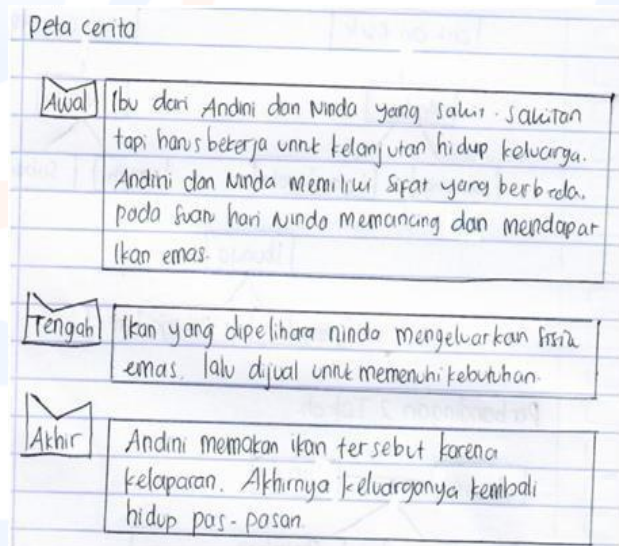 Peta cerita
Awal
Ibu dari Andini dan Ninda yang sakit-sakitan
tapi harus bekerja untuk kelanjutan hidup keluarga.
Andini dan Ninda memiliki sifat yang berbeda.
pada suatu hari Ninda memancing dan mendapat
Ikan emas.
Tengah
Ikan yang dipelihara ninda mengeluarkan sisik
emas. lalu dijual untuk memenuhi kebutuhan.
Akhir
Andini memakan ikan tersebut karena
kelaparan. Akhirnya keluarganya kembali
hidup pas-pasan.